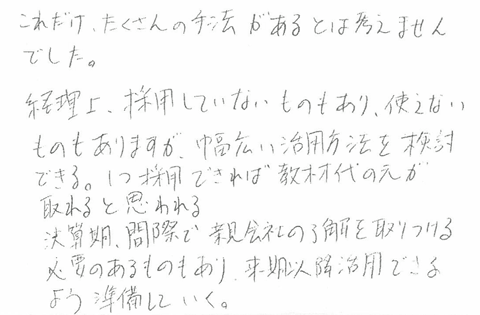 これだけ、たくさんの手法があるとは考えません
でした。
経理上、採用していないものもあり、使えない
ものもありますが、幅広い活用方法を検討
できる。1つ採用できれば教材代の元が
取れると思われる
決算期、間際で親会社の了解を取りつける
必要のあるものもあり、来期以降活用できる
よう準備していく。